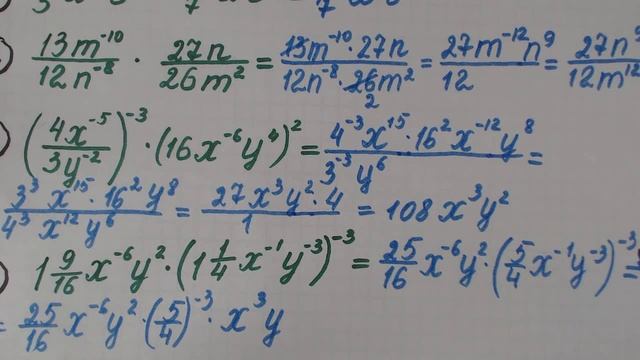 13m⁻¹⁰/12n⁻⁸ · 27n/26m² = 13m⁻¹⁰·27n/12n⁻⁸·26m² 2 = 27m⁻¹²n⁹/12 = 27n⁹/12m¹²
(4x⁻⁵/3y⁻²)⁻³ · (16x⁻⁶y⁴)² = 4⁻³x¹⁵·16²x⁻¹²y⁸/3⁻³y⁶ =
3³x¹⁵·16²y⁸/4³x¹²y⁶ = 27x³y²·4/1 = 108x³y²
1 9/16 x⁻⁶y² · (1 1/4 x⁻¹y⁻³)⁻³ = 25/16 x⁻⁶y² · (5/4 x⁻¹y⁻³)⁻³ =
= 25/16 x⁻⁶y² · (5/4)⁻³ · x³y